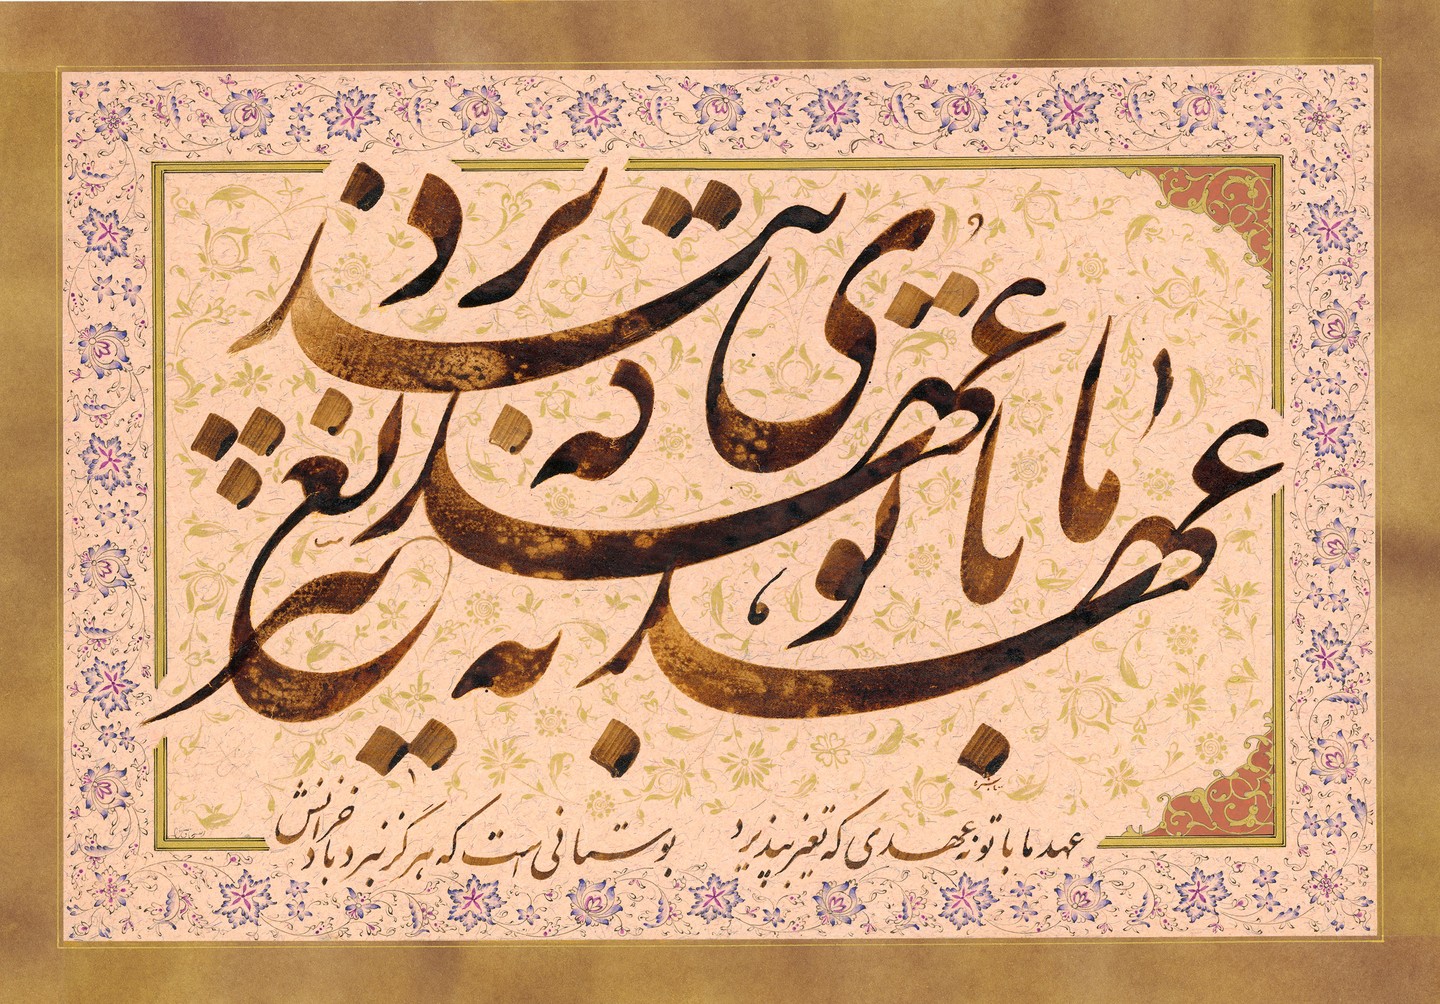 عهد ما با تو نه عهدی که تغیر بپذیرد
عهد ما با تو نه عهدی که تغیر بپذیرد بوستانی است که هرگز نبرد باد خزانش